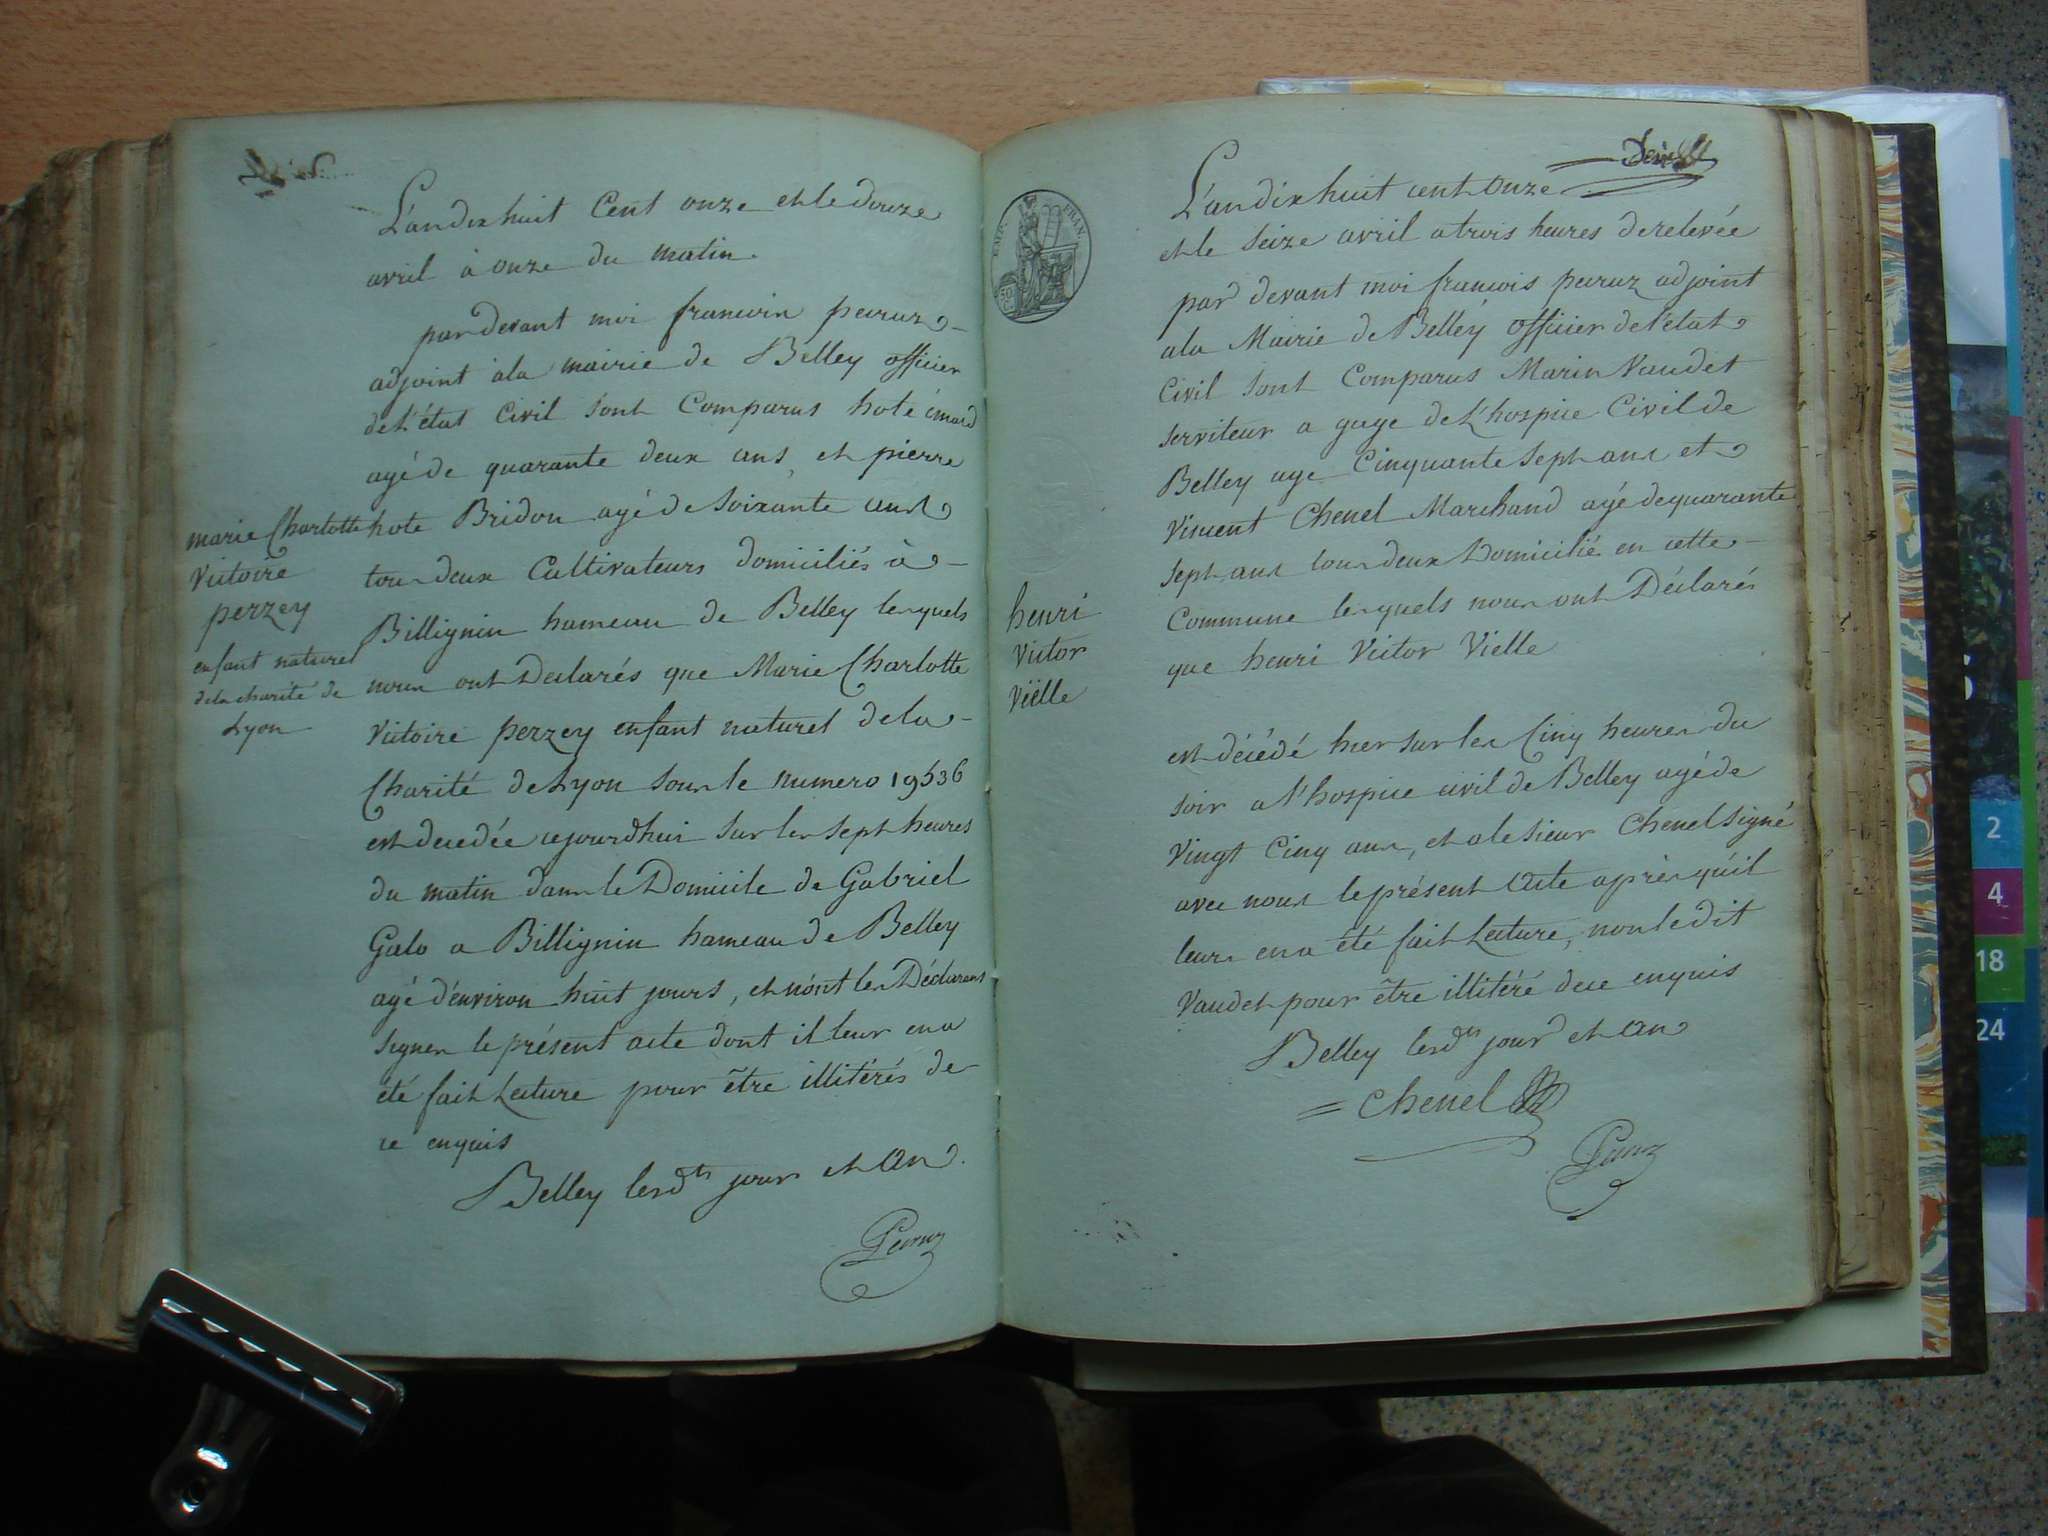 L'an dix huit Cent onze et le douze
avril à onze du matin.
par devant moi francois peiruz
adjoint à la mairie de Belley officier
de l'état Civil sont Comparus hote
agé de quarante deux ans, et pierre
hote Bridon agé de soixante ans
tous deux Cultivateurs domiciliés à
Billignin hameau de Belley lesquels
nous ont Declarés que Marie Charlotte
Victoire perzey enfant naturel de la
Charité de Lyon sous le numero 19536
est decedée cejourdhui sur les sept heures
du matin dans le Domicile de Gabriel
Galo a Billignin hameau de Belley
agé d'environ huit jours, et n'ont les Déclarans
signer le présent acte dont il leur en a
été fait Lecture pour être illitérés de
ce enquis
Belley lesdts jour et an.
Peiruz
marie Charlotte
Victoire
perzey
enfant naturel
de la charité de
Lyon
EMP. FRAN.
L'an dix huit cent onze
et le seize avril a trois heures de relevée
par devant moi francois peiruz adjoint
a la Mairie de Belley officier de l'état
Civil sont Comparus Marin Vaudet
serviteur a gage de L'hospice Civil de
Belley age Cinquante sept ans et
Vincent Chenel Marchand agé de quarante
sept ans tous deux Domicilié en cette
Commune lesquels nous ont Déclarés
que henri Victor Vielle
est décédé hier sur les Cinq heures du
soir a l'hospice civil de Belley agé de
Vingt Cinq ans, et a le sieur Chenel signé
avec nous le présent acte après qu'il
leurs en a été fait Lecture, non le dit
Vaudet pour être illitéré de ce enquis
Belley lesdts jour et an
Chenel
Peiruz
henri
Victor
Viëlle
2
4
18
24